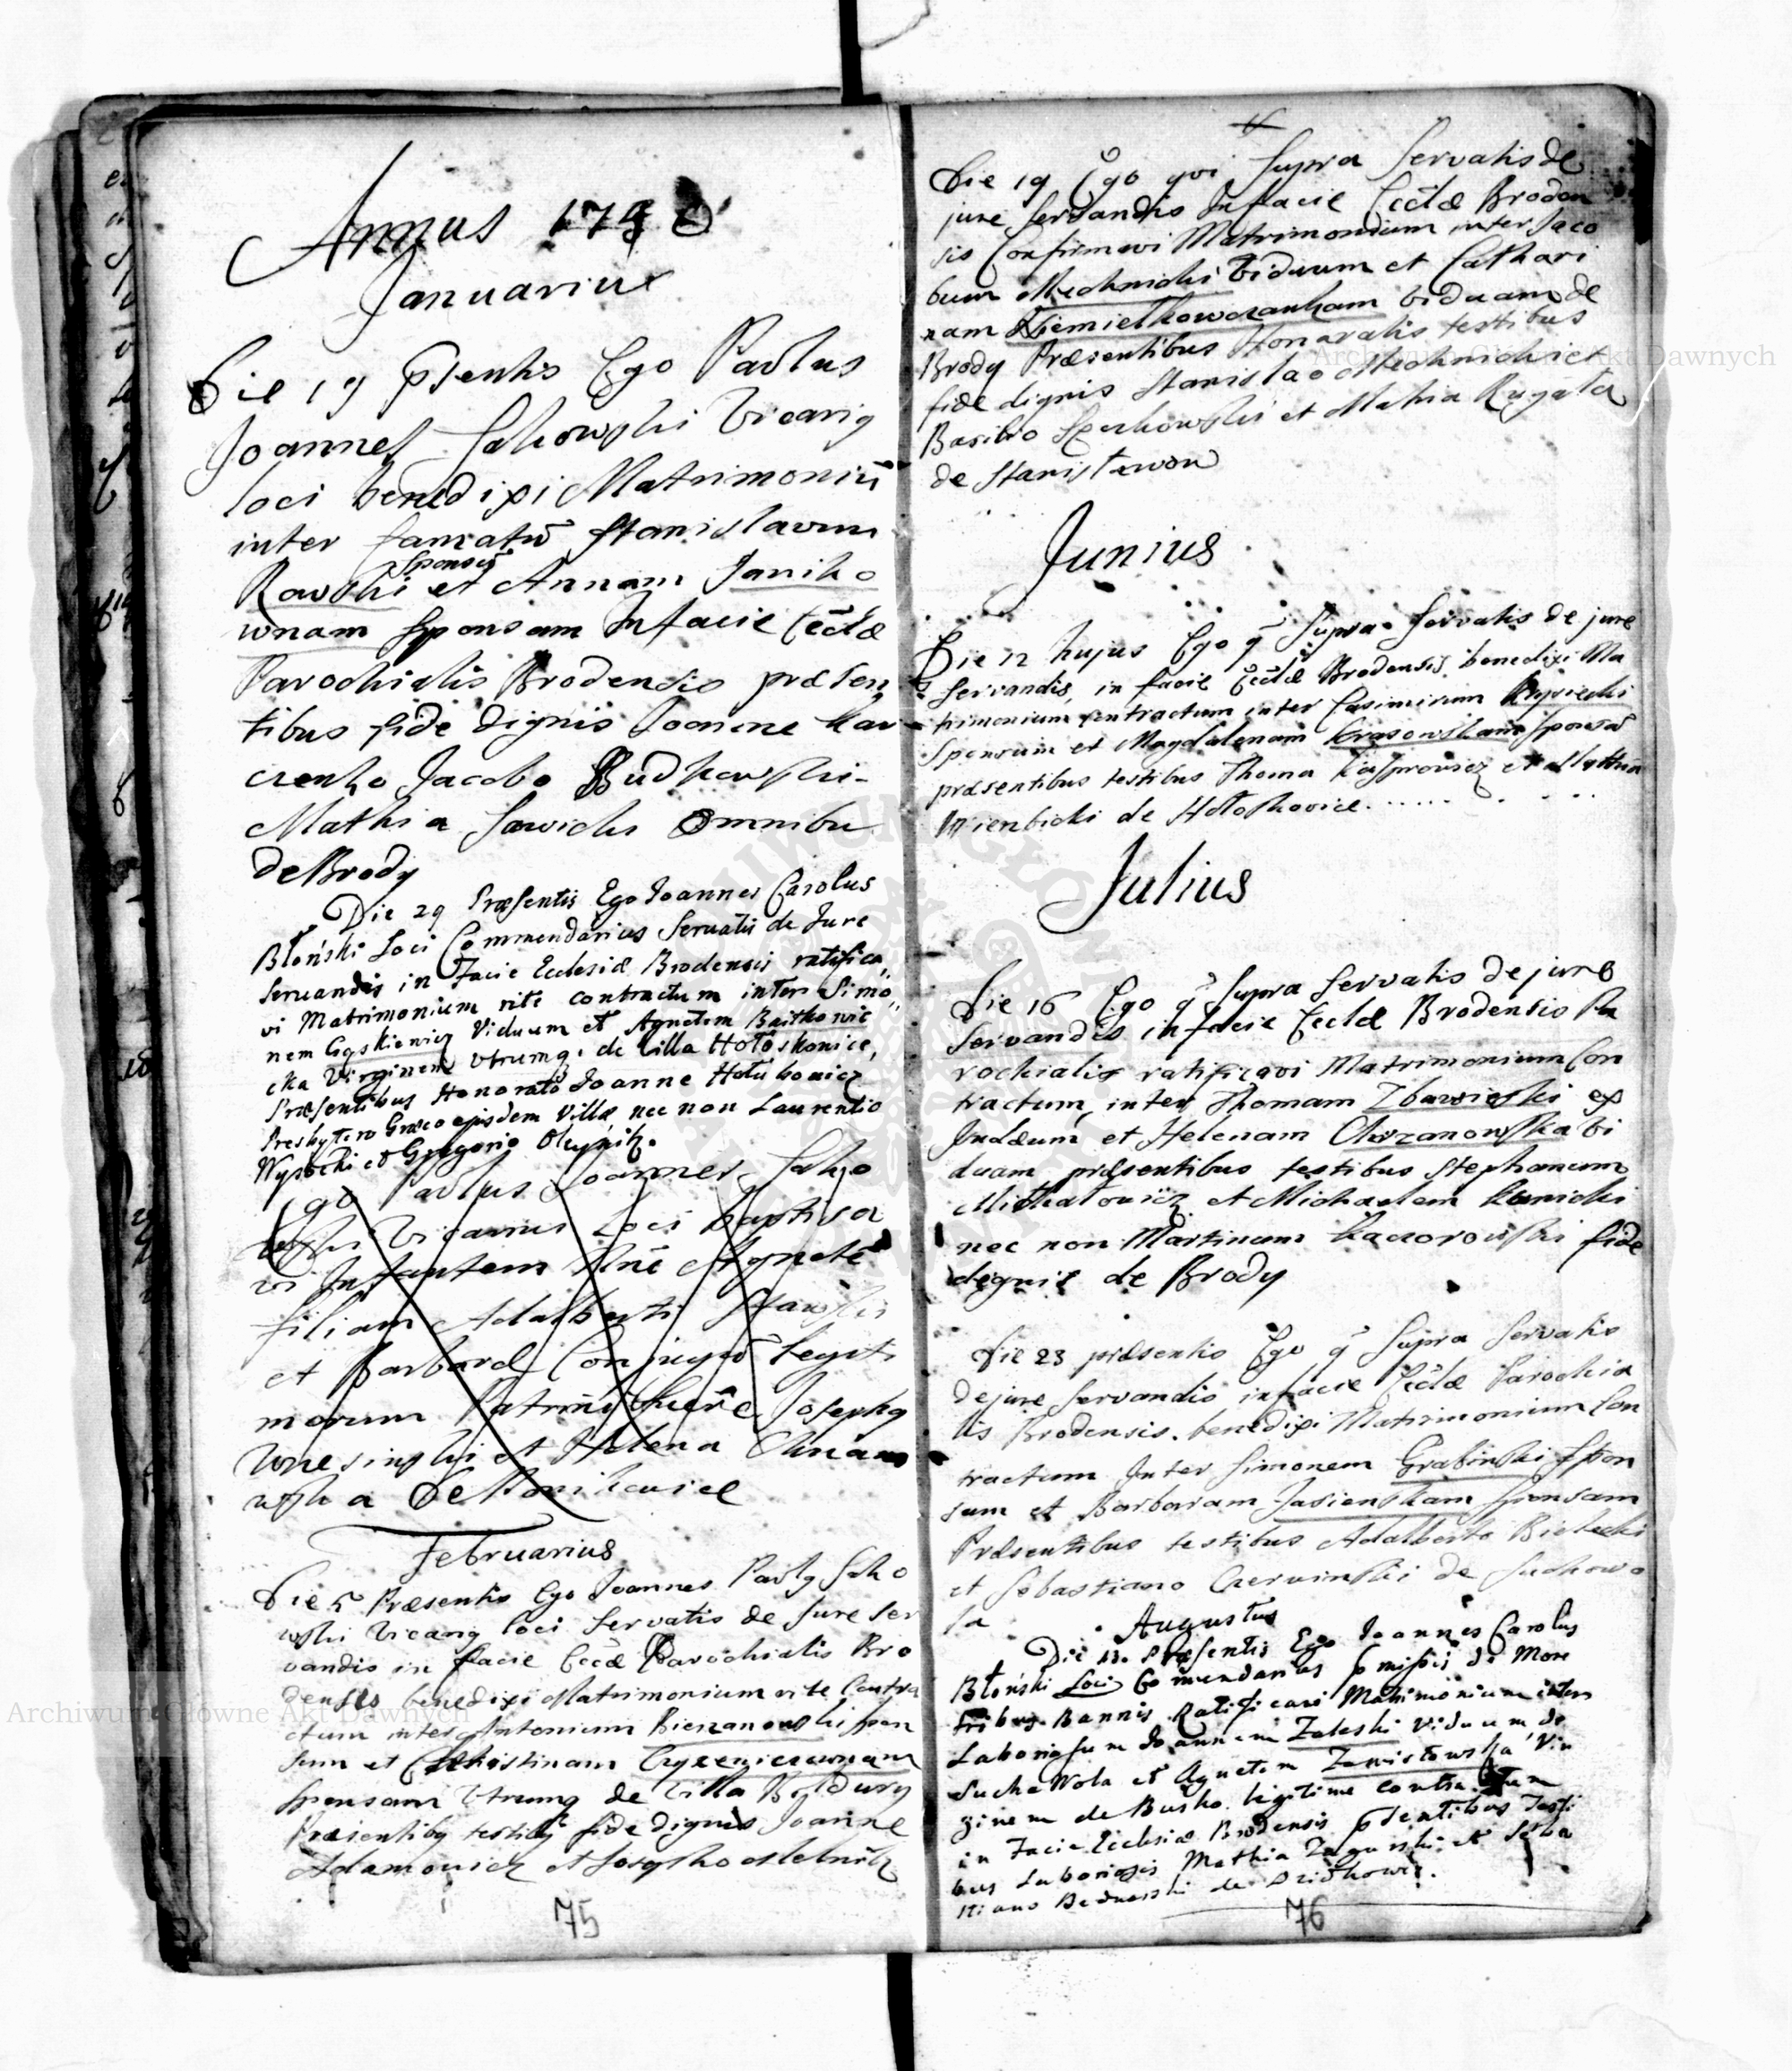 Annus 1748
Januarius
Die 19 p̄sentis Ego Paulus
Joannes Sakowski Vicariq
loci benedixi Matrimoniū
inter famatū Stanislaum
Sponsū
Rawski et Annam Janiko
wnam Sponsam In facie Eccłæ
Parochialis Brodensis præsen
tibus fide dignis Joanne Kar
czenko Jacobo Budkowski
Mathia Sawicki Omnibu
de Brody
Die 29 Præsentis Ego Joannes Carolus
Błoński Loci Commendarius Seruatis de Jure
Seruandis in Facie Ecclesiæ Brodensis ratifica,,
vi Matrimonium rite contractum inter Simo,,
nem Gąskiewicz Viduum et Agnetem Baitkowie
cka Virginem utrumq. de Villa Hołoskowice,
Præsentibus Honorato Joanne Hołubowicz
Presbytero Græco ejusdem Villæ, nec non Laurentio
Wysocki et Gregorio Oleynik.
Ego Paulus Joannes Sako
wski Vicarius Loci baptisa
vi Infantem Nñe Agnetē
filiam Adalberti
et Barbaræ Conjugū legiti
morum Patrini fuere Josephq
et Helena
wska de
Februarius
Die 5 Præsentis Ego Joannes Paulq Sako
wski Vicariq loci Servatis de Jure Ser
vandis in facie Eccæ Parochialis Bro
densis benedixi Matrimonium rite Contra
ctum inter Antonium Bierzanowski spon
sum et Christinam
Sponsam Utrumq de Villa Bołdury
Præsentibq testibq fide dignis Joanne
Adamowicz et Josepho Melnik
75
Die 19 Ego qvi Supra Servatis de
jure Servandis In facie Eccłæ Broden
sis Confirmavi Matrimonium inter Jaco
bum Mechnicki Viduum et Cathari
nam Niemietkowczankam viduam de
Brody Præsentibus Honoratis testibus
fide dignis Stanislao Mechnicki et
Basilio Szczkowski et Mathia Rygała
de Stanisławow
Junius
Die 12 hujus Ego q Supra Servatis de jure
Servandis, in facie Eccłæ Brodensis benedixi Ma
trimonium contractum inter Casimirum
Sponsum et Magdalenam Krasowskam Sponsā
præsentibus testibus Thoma Kasprowicz et Matthia
Wierbicki de Hołoskovice
Julius
Die 16 Ego q Supra Servatis de jure
Servandis in facie Eccłæ Brodensis Pa
rochialis ratificavi Matrimonium Con
tractum, inter Thomam Zbawieski ex
Judæum, et Helenam Chrzanowska Vi
duam præsentibus testibus Stephanum
Michałowicz et Michaelem Kunicki
nec non Martinum Kaczorowski fide
degnis de Brody
Die 23 præsentis Ego q Supra Servatis
de jure Servandis in facie Eccłæ Parochia
lis Brodensis. benedixi Matrimonium Con
tractum Inter Simonem Grabinski Spon
sum et Barbaram Jasienskam Sponsam
Præsentibus testibus Adalberto Bielecki
et Sebastiano Czerwinski de Suchowo
la
Augustus
Die 13. Præsentis Ego Joannes Carolus
Błoński Loci Comendarius p̄missis de More
tribus Bannis Ratificavi Matrimonium inter
Laboriosum Joannem Zaleski Viduum de
Sucha Wola et Agnetem Zawistowska Vir
ginem de Busko. legitime contractum
in Facie Ecclesiæ Brodensis p̄sentibus Testi
bus Laboriosis Mathia Zagurski et Seba
stiano Bednarski de
76
Archiwum Główne Akt Dawnych
Archiwum Główne Akt Dawnych